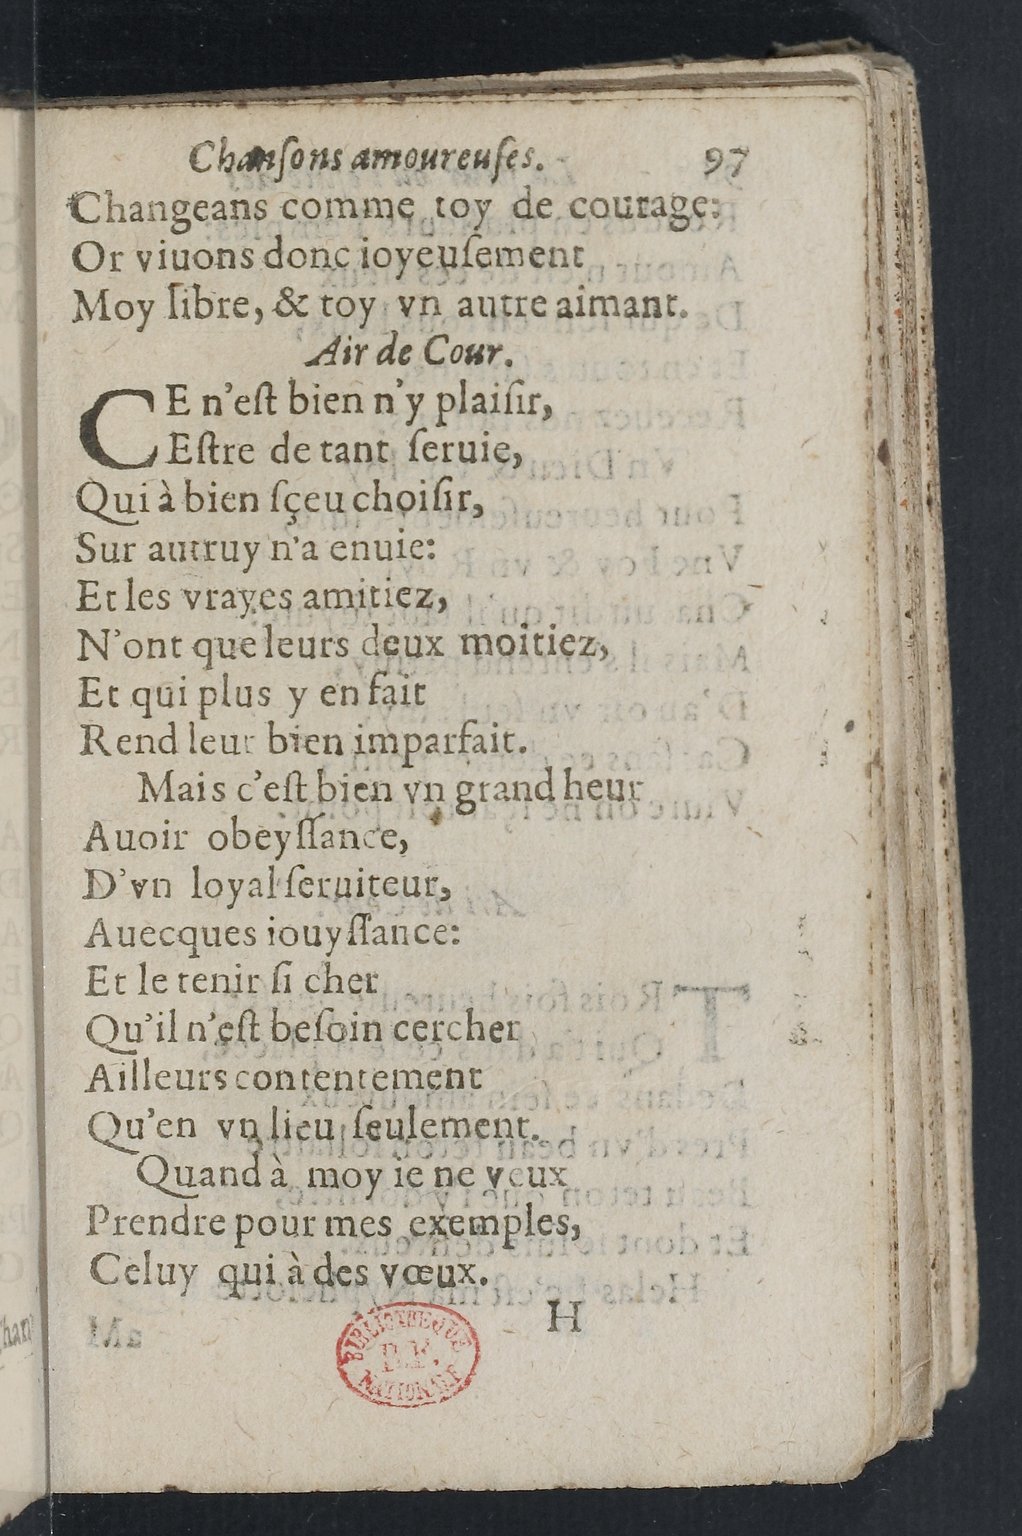 Chanſons amoureuſes. 97
Changeans comme toy de courage:
Or viuons donc ioyeuſement
Moy libre, & toy vn autre aimant.
Air de Cour.
CE n'eſt bien n'y plaiſir,
Eſtre de tant ſeruie,
Qui à bien ſçeu choiſir,
Sur autruy n'a enuie:
Et les vrayes amitiez,
N'ont que leurs deux moitiez,
Et qui plus y en fait
Rend leur bien imparfait.
Mais c'eſt bien vn grand heur
Auoir obeyſſance,
D'vn loyal ſeruiteur,
Auecques iouyſſance:
Et le tenir ſi cher
Qu'il n'eſt beſoin cercher
Ailleurs contentement
Qu'en vn lieu ſeulement.
Quand à moy ie ne veux
Prendre pour mes exemples,
Celuy qui à des vœux.
H
BIBLIOTHEQUE
NATIONALE